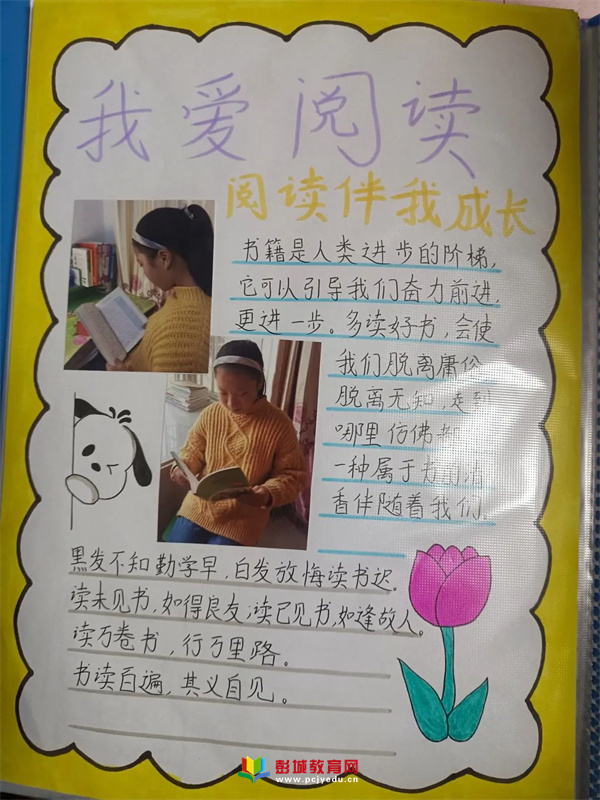 我爱阅读
阅读伴我成长
书籍是人类进步的阶梯,
它可以引导我们奋力前进,
更进一步。多读好书,会使
我们脱离庸俗
脱离无知,走到
哪里仿佛都
一种属于书的清
香伴随着我们。
黑发不知勤学早,白发放悔读书迟。
读未见书,如得良友;读已见书,如逢故人。
读万卷书,行万里路。
书读百遍,其义自见。
彭城教育网
www.pcjyedu.cn